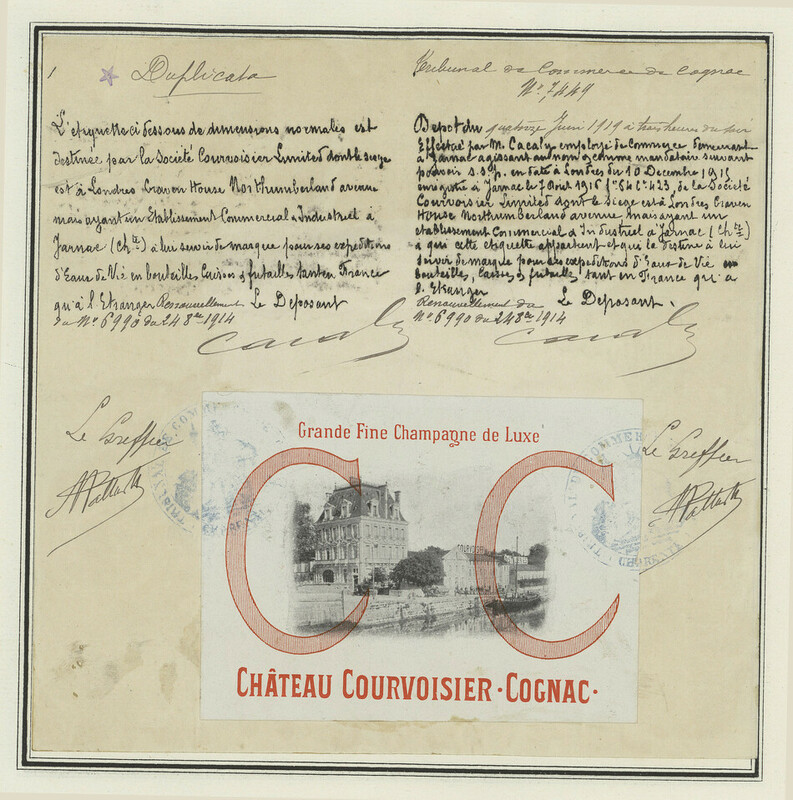 1 Duplicata
L'étiquette ci dessous de dimensions normales est
destinée par la Société Courvoisier Limited dont le siège
est à Londres Craven House Northumberland avenue
mais ayant un Etablissement Commercial & Industriel à
Jarnac (Ch te) à lui servir de marque pour ses expéditions
d'Eaux de Vie en bouteilles, Caisses & futailles tant en France
qu'à l'Etranger Renouvellement Le Deposant
du No 6990 du 24 8bre 1914
Cacaly
Tribunal de Commerce de Cognac
No 7449
Depot du quatorze Juin 1919 à trois heures du soir
Effectué par M. Cacaly employé de Commerce demeurant
à Jarnac agissant au nom & comme mandataire suivant
pouvoir s.s.p. en date à Londres du 10 Décembre 1915
enregistré à Jarnac le 7 Aout 1916 fo 64 Co 423, de la Société
Courvoisier Limited dont le Siege est à Londres Craven
House Northumberland avenue mais ayant un
etablissement Commercial & Industriel à Jarnac (Ch te)
à qui cette etiquette appartient et qui la destine à lui
servir de marque pour ses expeditions d'Eaux de Vie en
bouteilles, caisses, & futailles, tant en France qu'à
l'Etranger
Renouvellement du Le Deposant.
No 6990 du 24 8bre 1914
Cacaly
Le Greffier
Le Greffier
Grande Fine Champagne de Luxe
C C
COURVOISIER
CHÂTEAU COURVOISIER·COGNAC·
TRIBUNAL DE COMMERCE
TRIBUNAL DE COMMERCE
CHARENTE